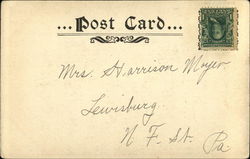 ...Post Card...
Mrs. Harrison Moyer
Lewisburg
N F. St. Pa